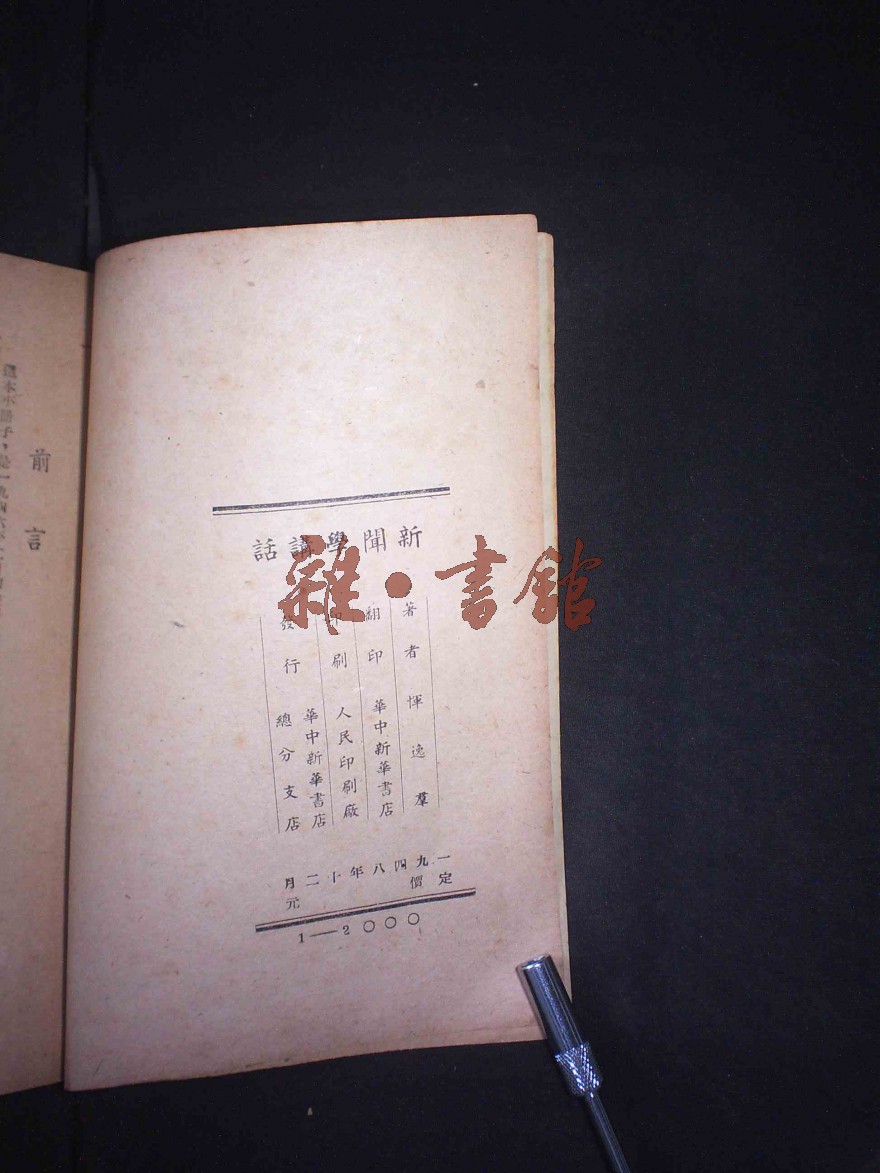 新聞學講話
著者 惲逸羣
翻印 華中新華書店
印刷 人民印刷廠
發行 華中新華書店
總分支店
一九四八年十二月
定價 元
1—2〇〇〇
雜·書館
前言